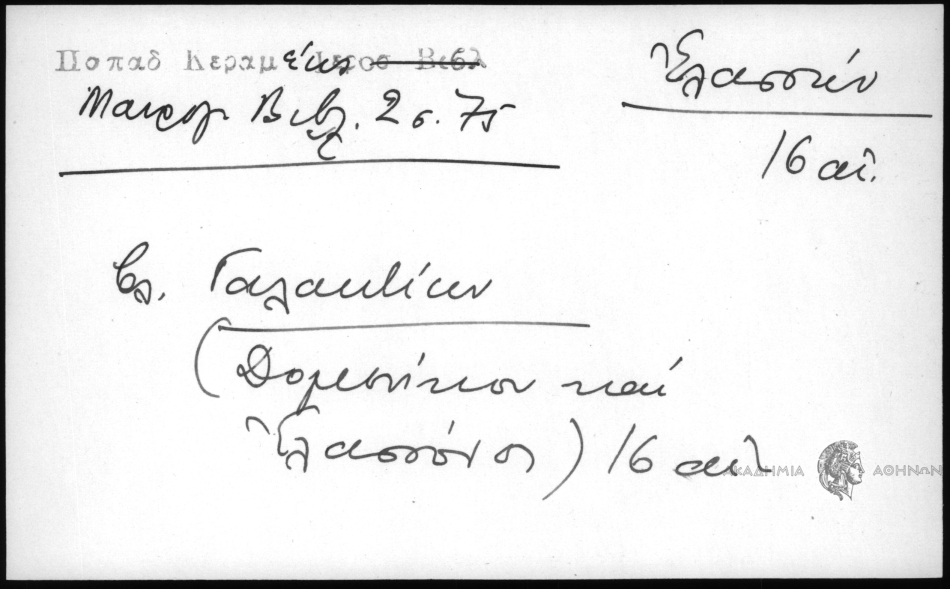 Παπαδ Κεραμέως Ιεροσ Βιβλ
Μαυρογ. Βιβλ. 2 σ. 75
Ἐλασσών
16 αἰ.
βλ. Γαλακτίων
(Δομενίκου καί
Ἐλασσόνος) 16 αἰ.
ΑΚΑΔΗΜΙΑ ΑΘΗΝΩΝ